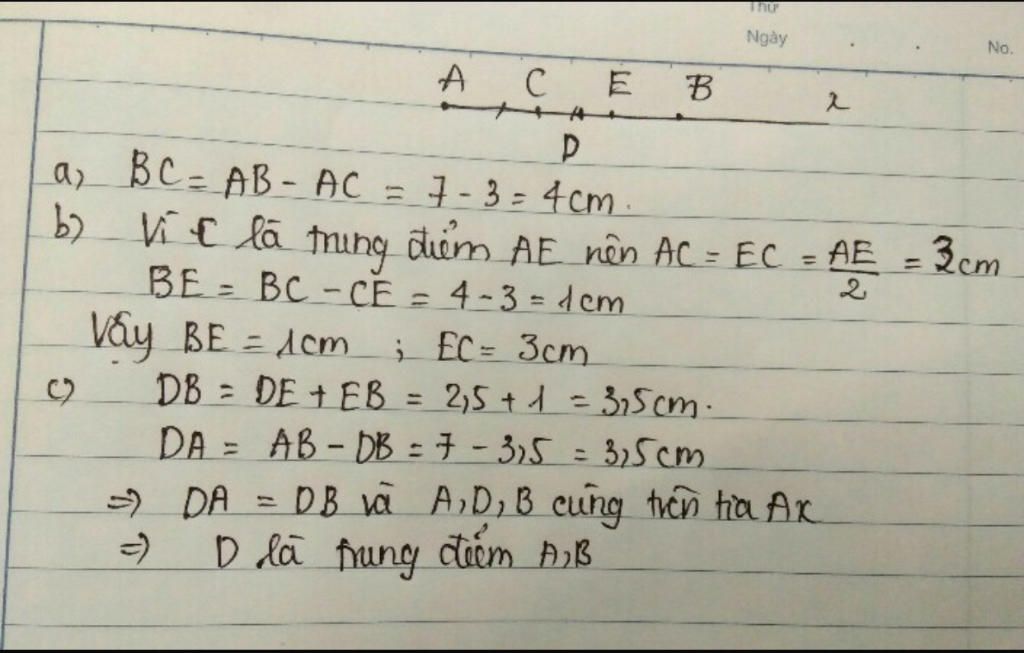 Thứ
Ngày . . No.
A C E B x
D
a, BC = AB - AC = 7 - 3 = 4cm.
b) Vì C là trung điểm AE nên AC = EC = AE/2 = 3cm
BE = BC - CE = 4 - 3 = 1cm
Vậy BE = 1cm ; EC = 3cm
c) DB = DE + EB = 2,5 + 1 = 3,5cm.
DA = AB - DB = 7 - 3,5 = 3,5cm
=> DA = DB và A,D,B cùng trên tia Ax
=> D là trung điểm A,B